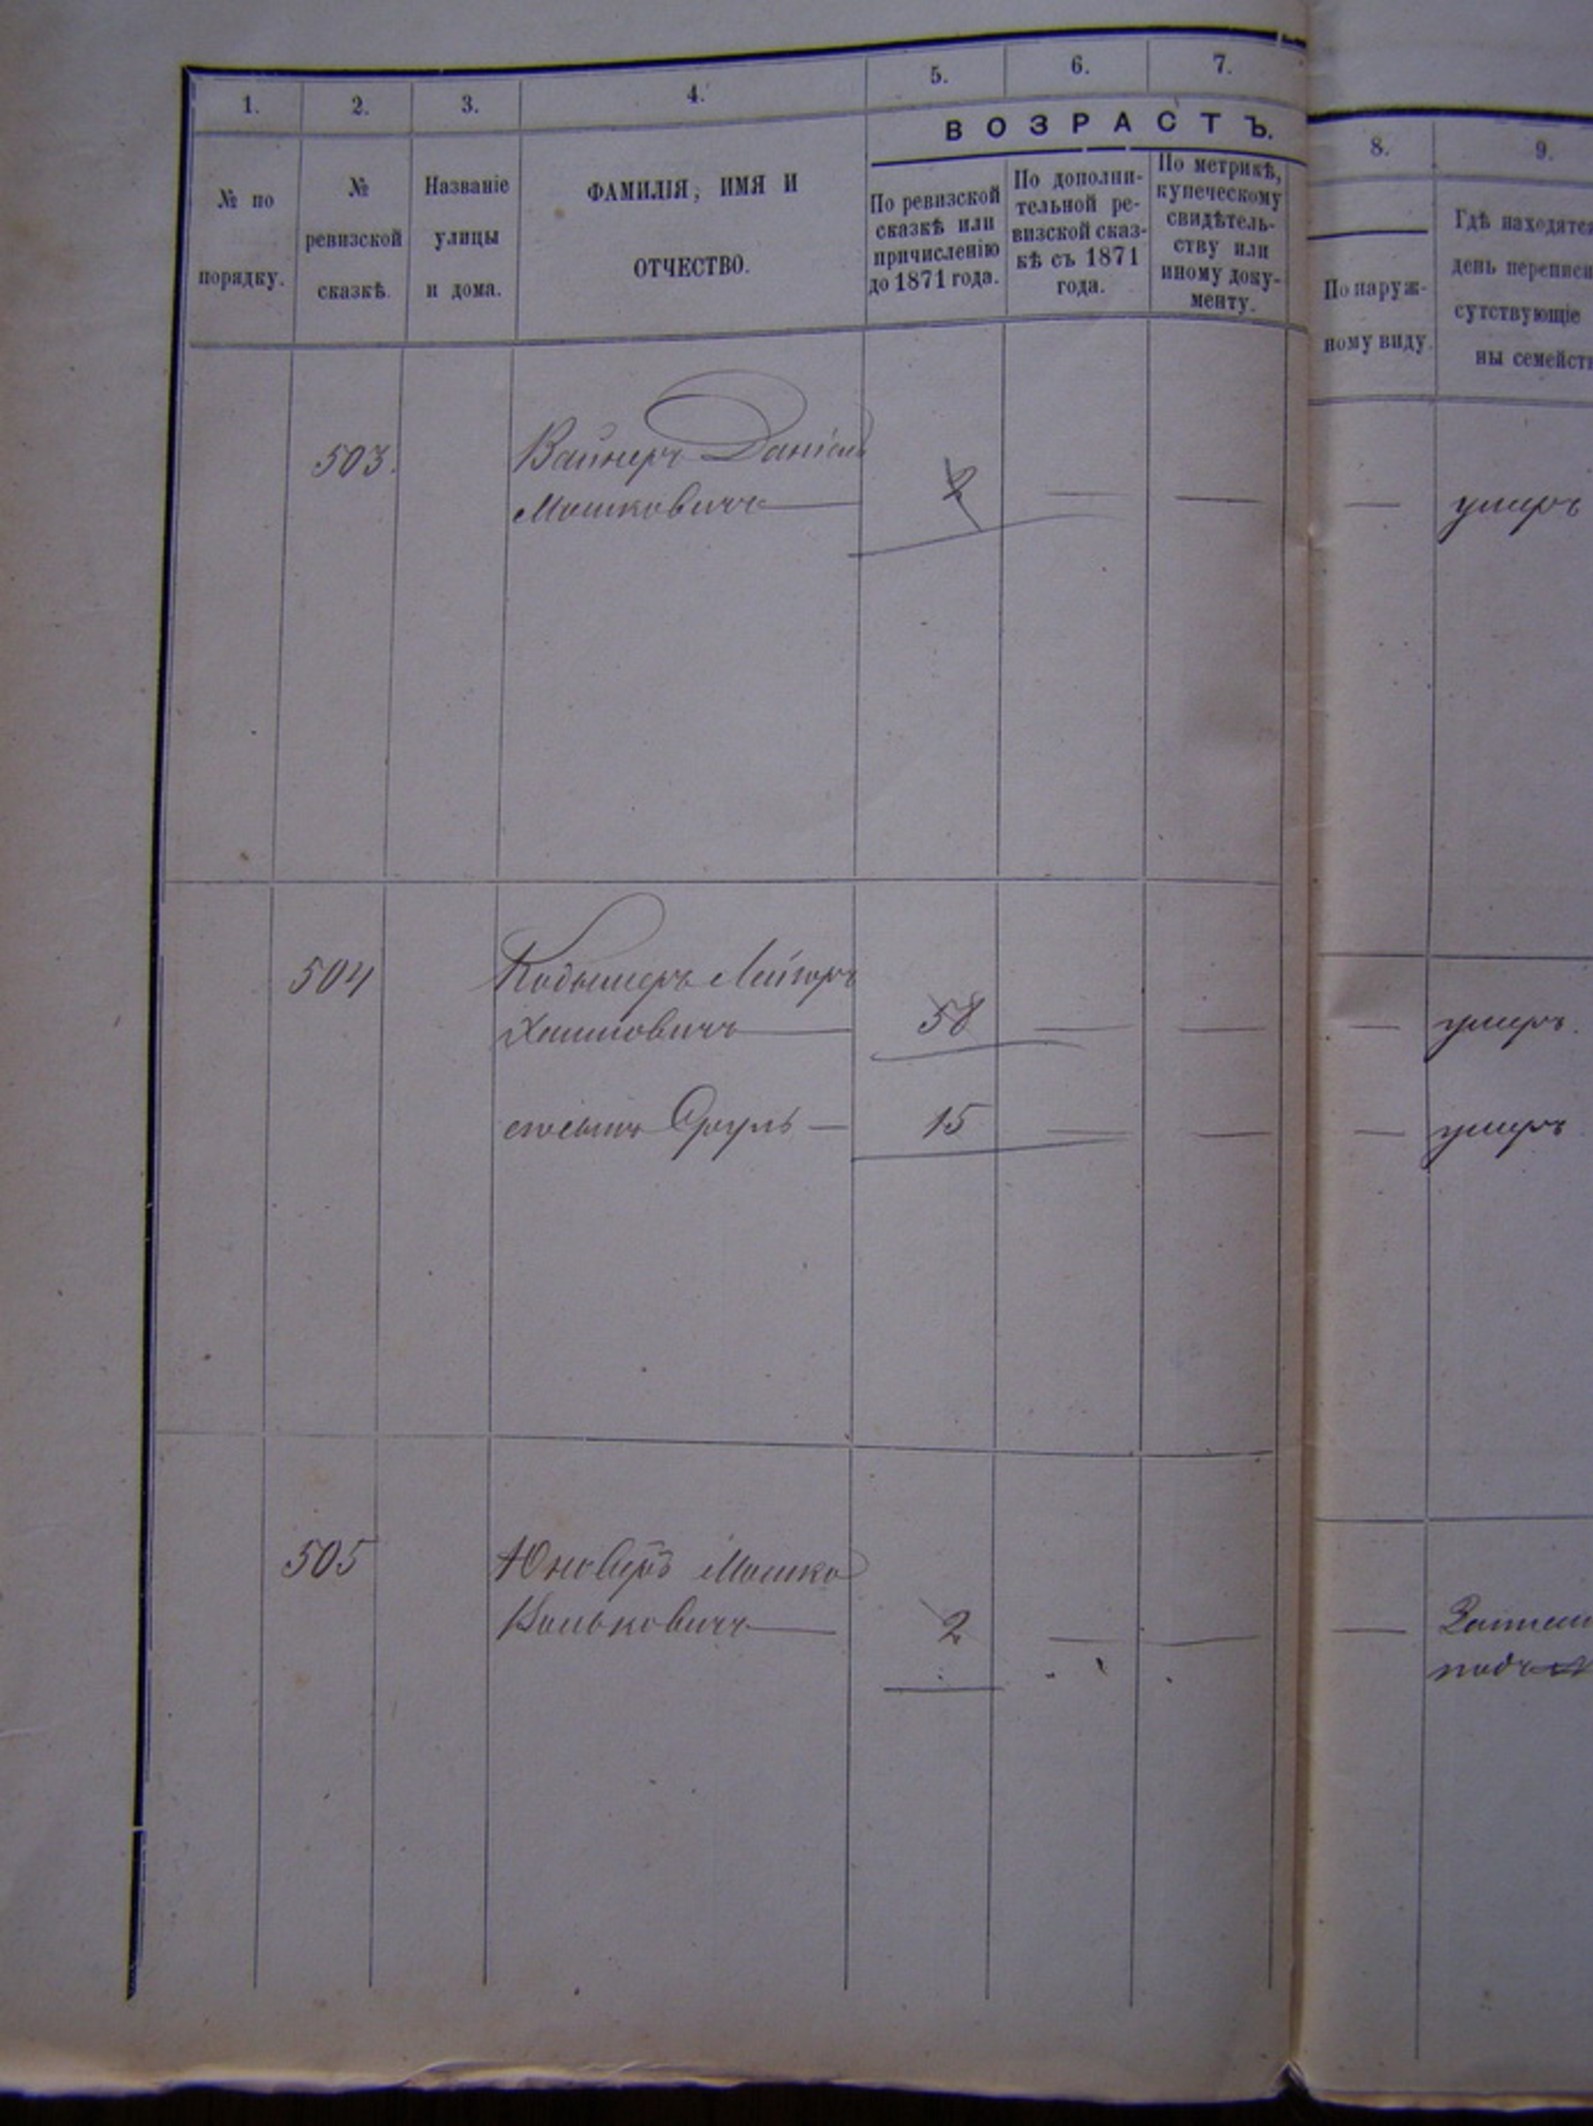 1. 2. 3. 4. 5. 6. 7.
ВОЗРАСТЪ.
№ по
порядку.
№
ревизской
сказкѣ.
Названіе
улицы
и дома.
ФАМИЛІЯ, ИМЯ И
ОТЧЕСТВО.
По ревизской
сказкѣ или
причисленію
до 1871 года.
По дополни-
тельной ре-
визской сказ-
кѣ съ 1871
года.
По метрикѣ,
купеческому
свидѣтель-
ству или
иному доку-
менту.
8. 9.
По наруж-
ному виду.
Гдѣ находятся
день переписи
сутствующіе
ны семейств
503. Вайнеръ Даніель
Мошковичъ — 2 — — — умеръ
504 Кодымеръ Лейзоръ
Хаимовичъ — 58 — — — умеръ.
его сынъ Сруль — 15 — — — умеръ
505 Мошко
— 2 — — —